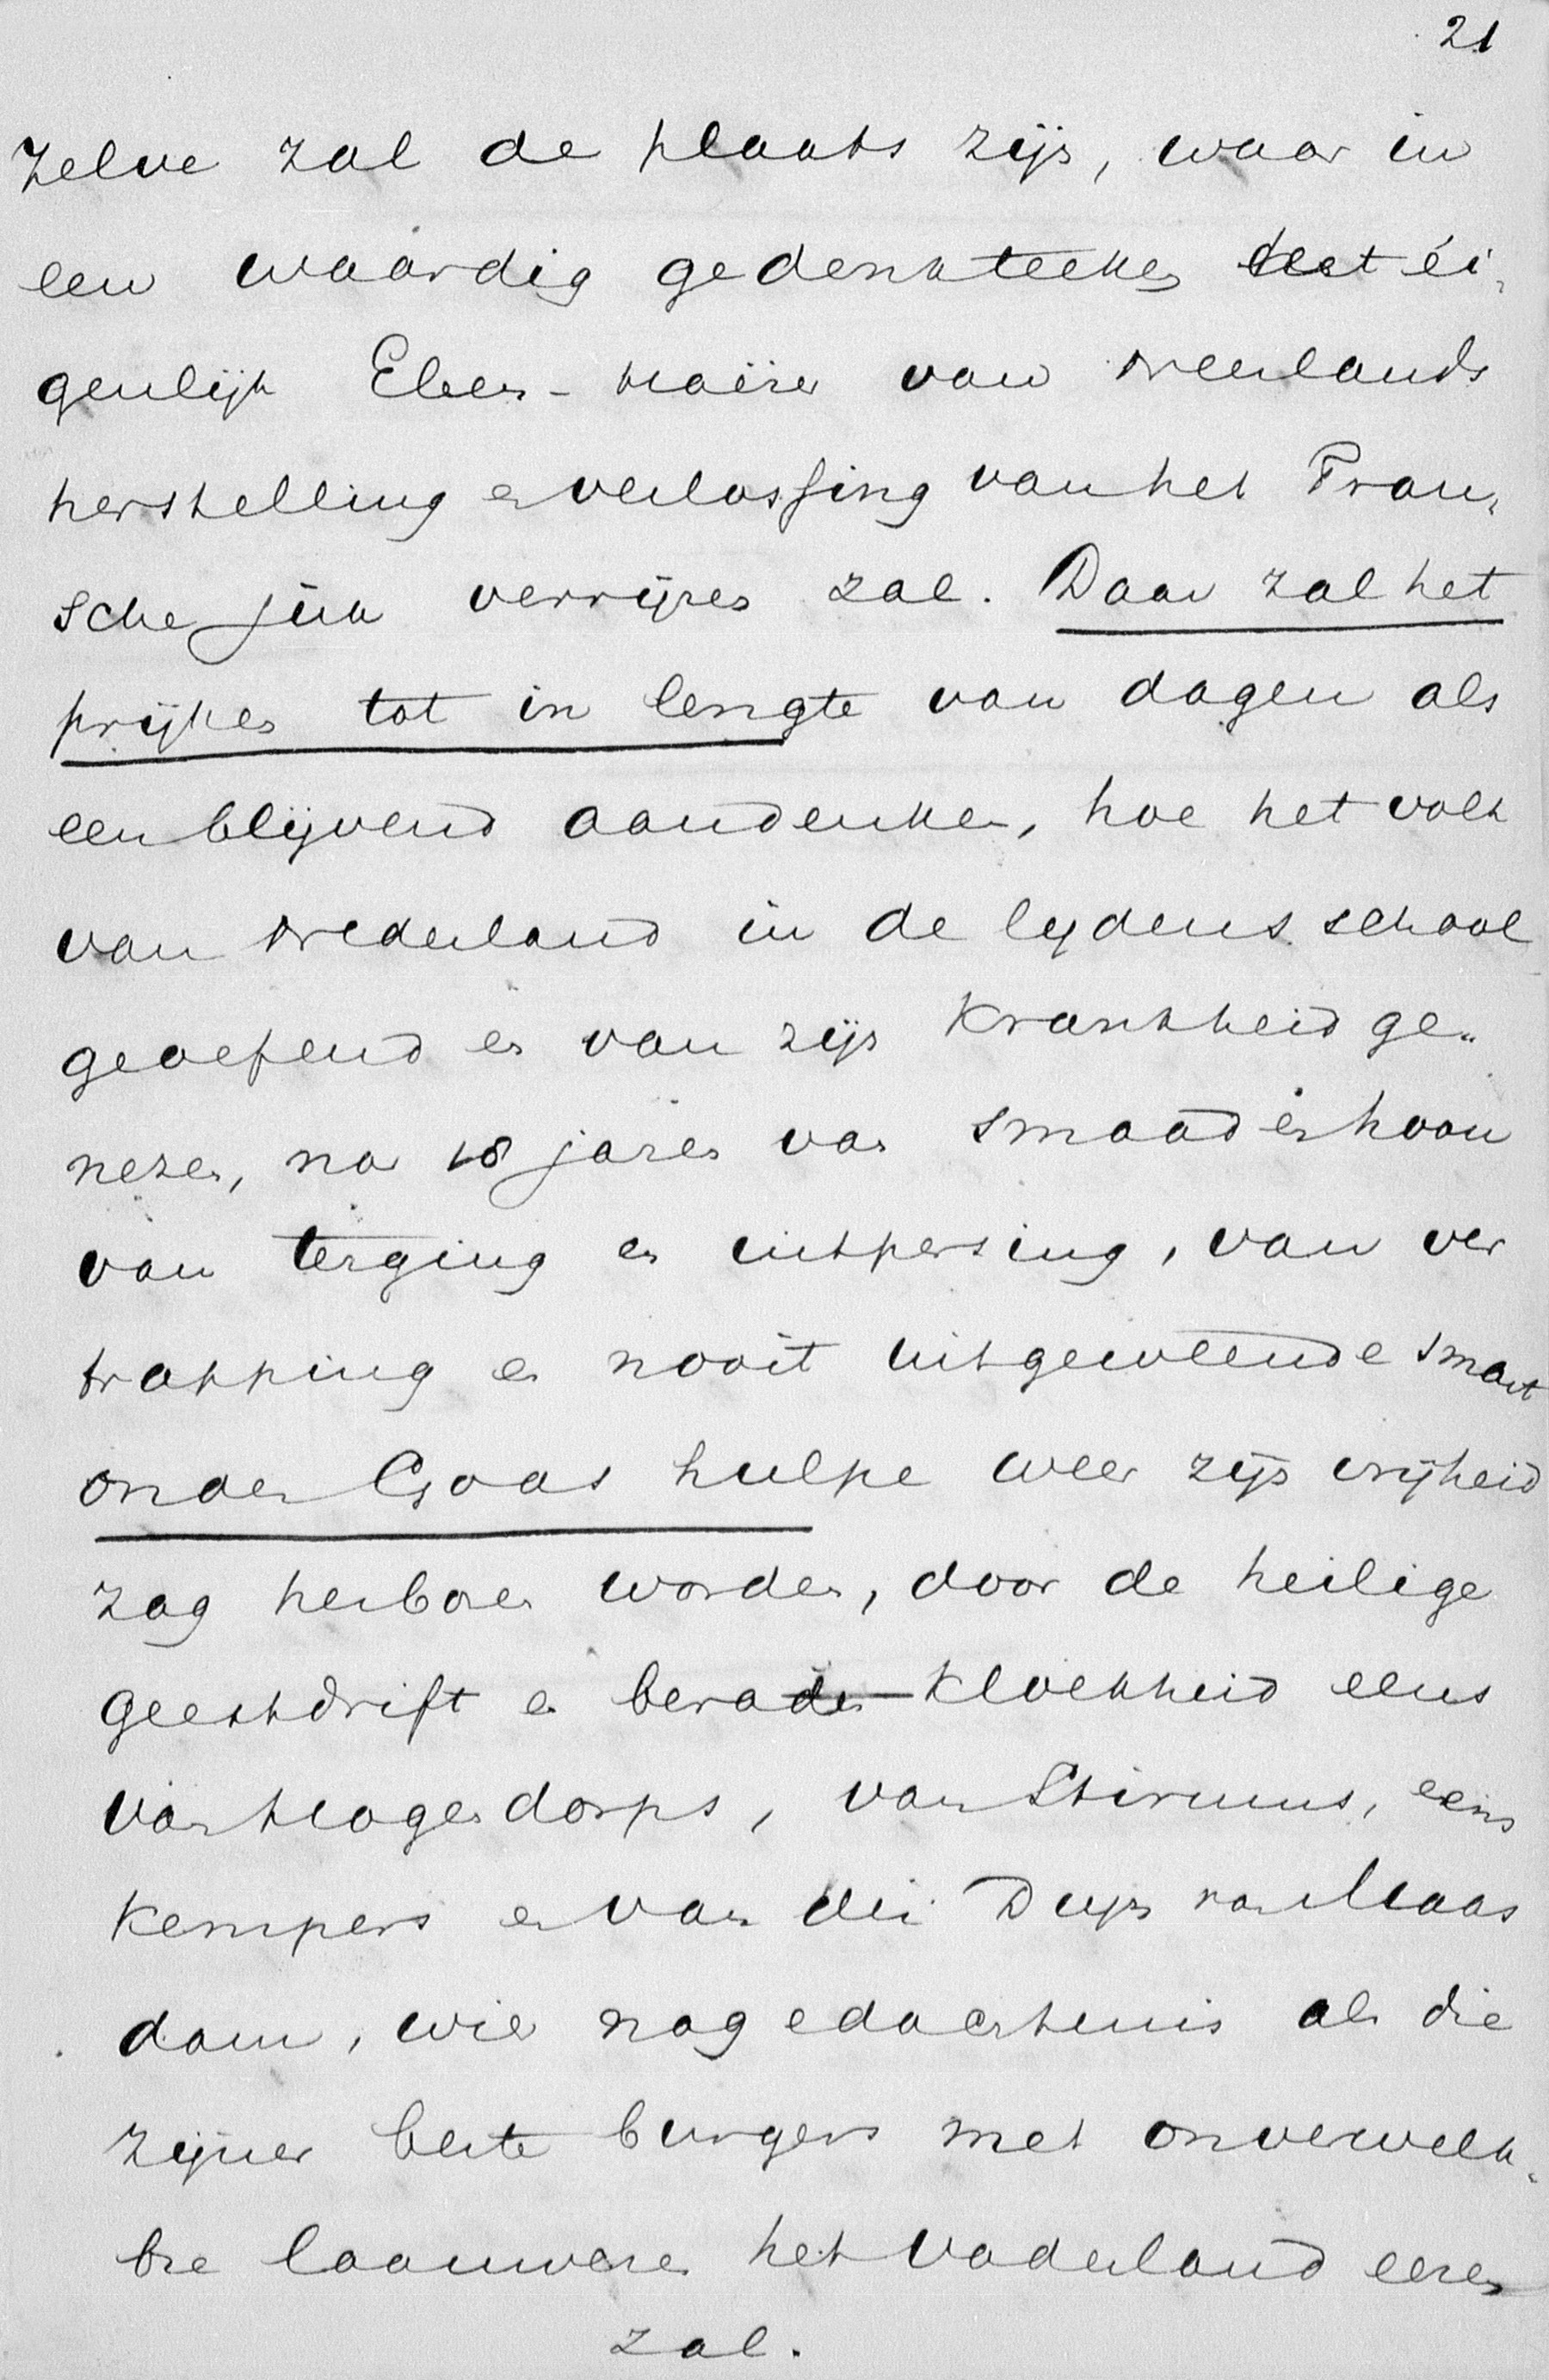 21
zelve zal de plaats zijn, waar in
een waardig gedenkteeken het ei-
genlijk Eben-Haëzer van Neerlands
herstelling en verlossing van het Fran-
sche juk verrijzen zal. Daar zal het
prijken tot in lengte van dagen als
een blijvend aandenken, hoe het volk
van Nederland in de lydensschool
geoefend en van zijn krankheid ge-
nezen, na 18 jaren van smaad en hoon
van terging en uitpersing, van ver
trapping en nooit uitgeweende smart
onder Gods hulpe weer zijn vrijheid
zag herboren worden, door de heilige
geestdrift en beraden kloekheid eens
van Hogendorps, van Stirums, eens
Kempers en van der Duyn van Maas
dam, wier nagedachtenis als die
zijner beste burgers met onverwelk-
bre laauweren het Vaderland eeren
zal.